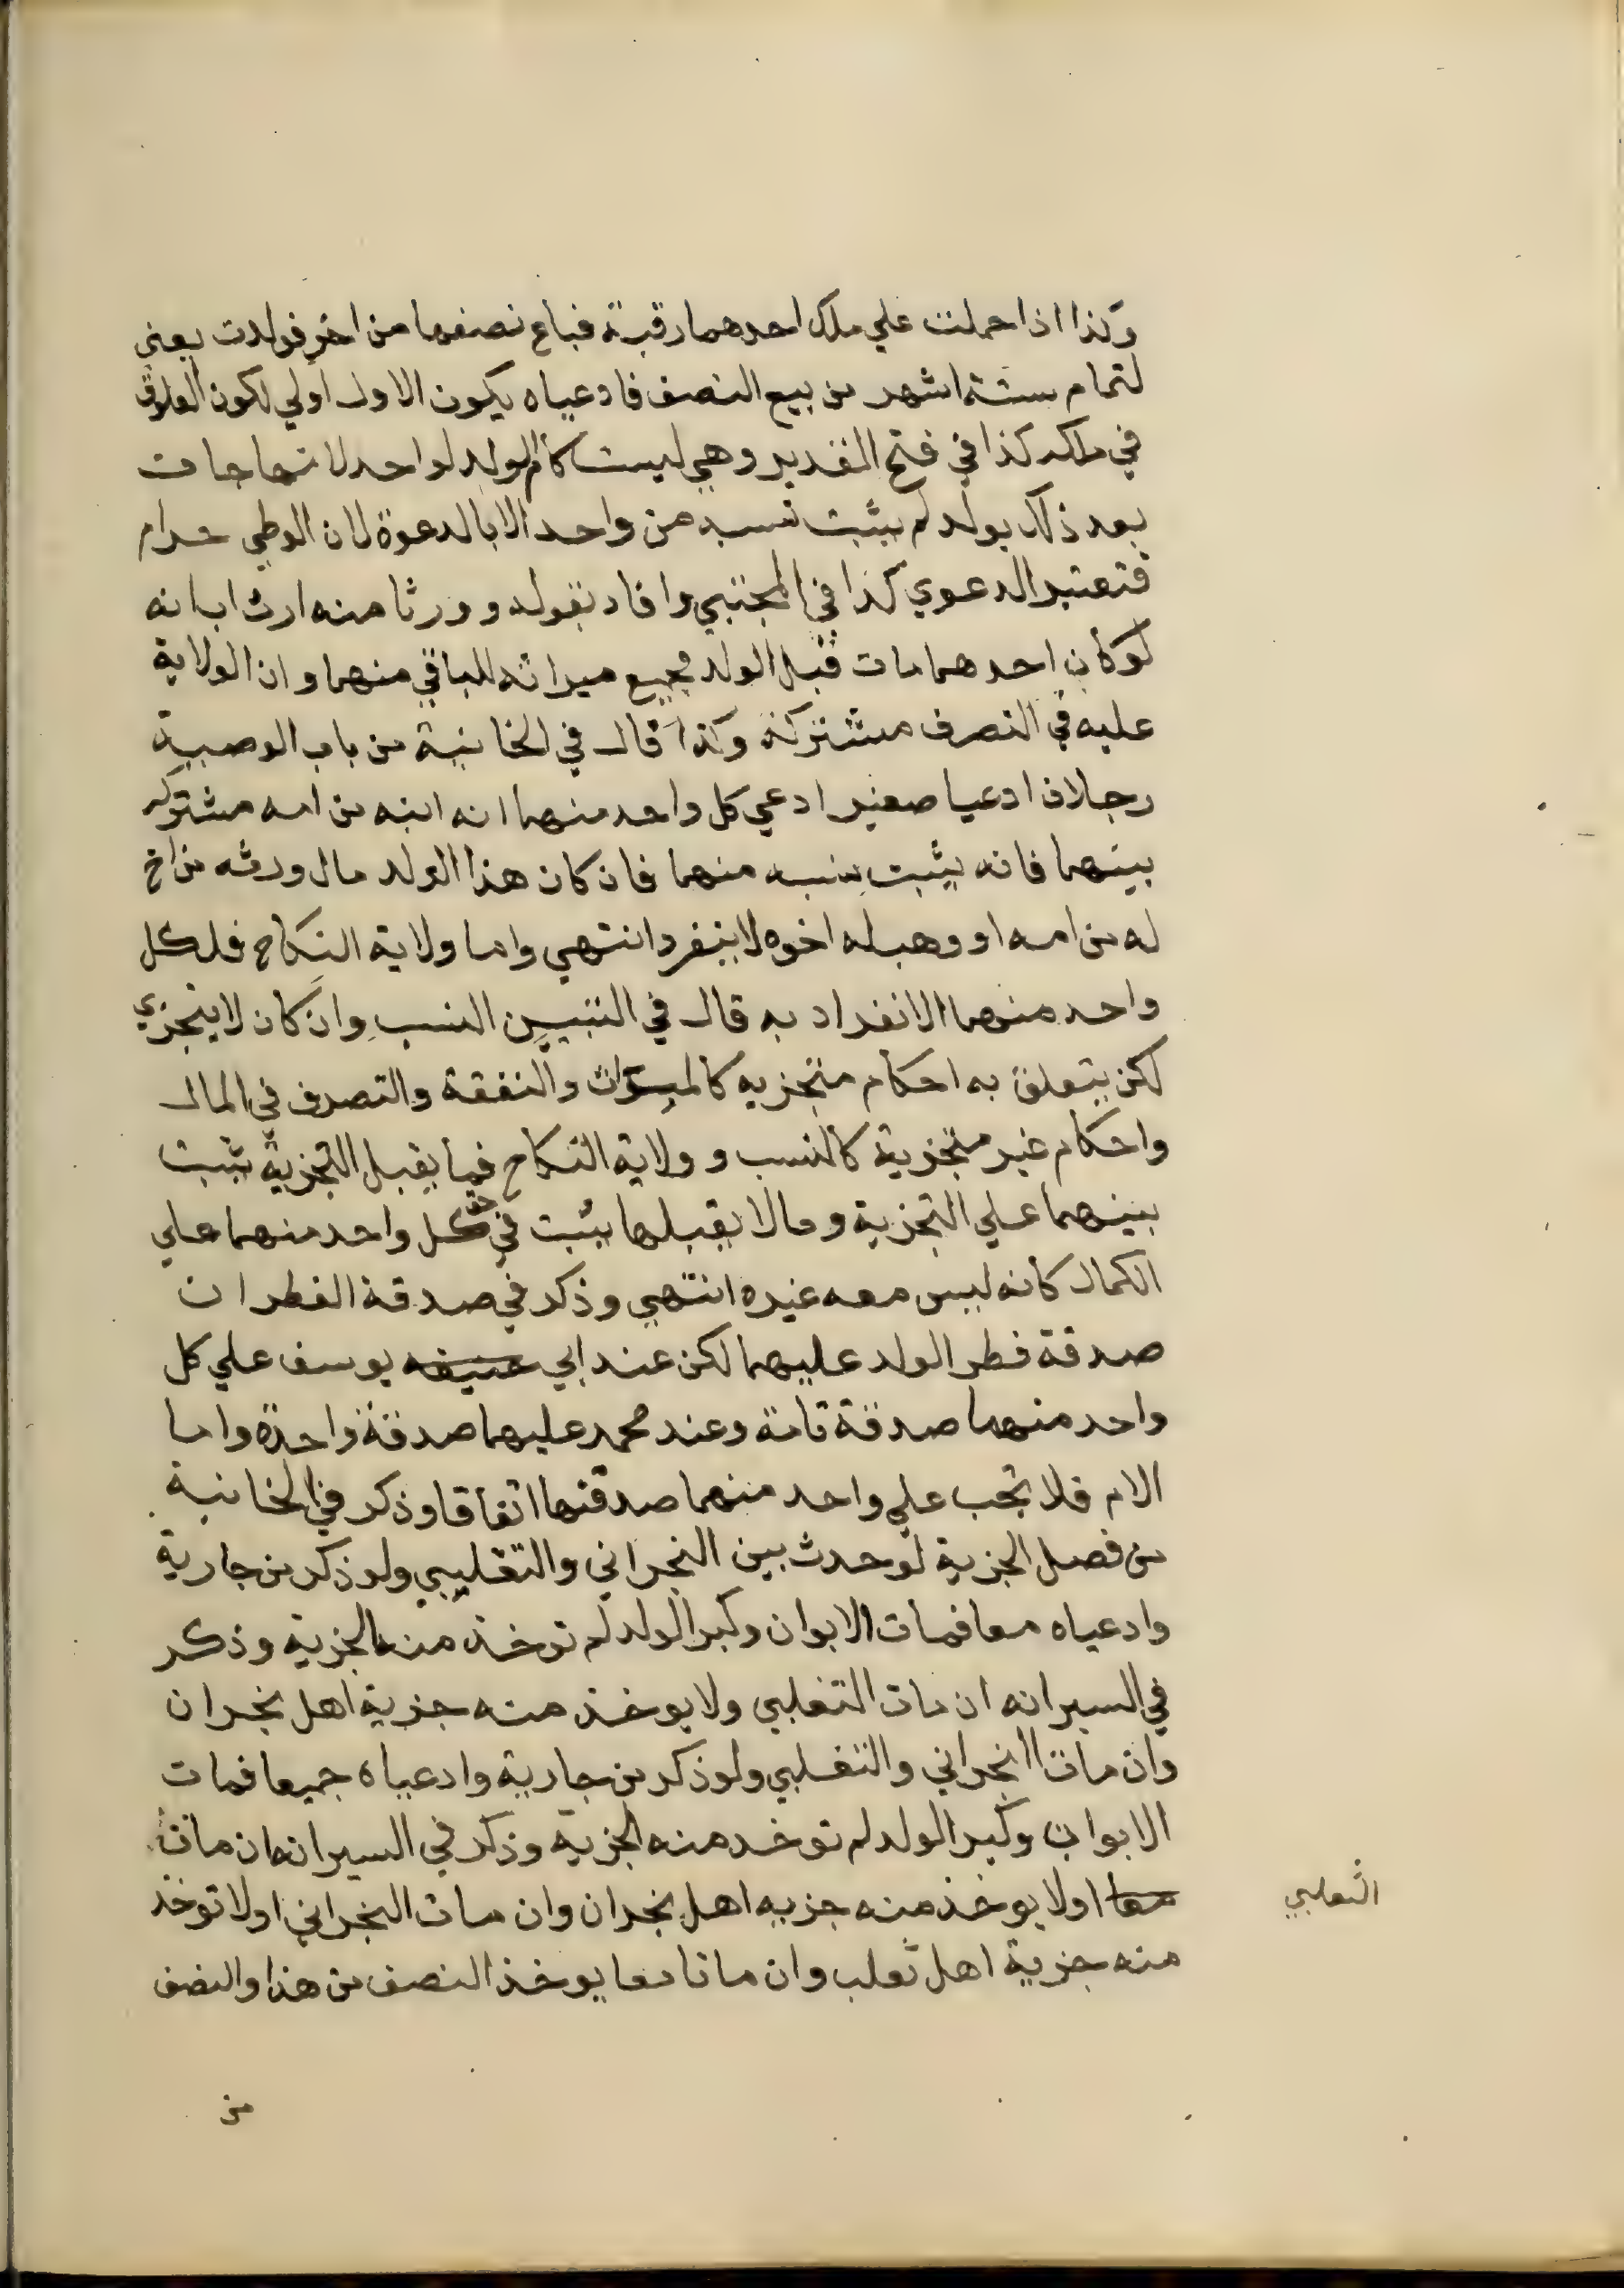 وكذا اذا حملت علي ملك احدهما رقبة فباع نصفها من اخر فولدت يعني
لتمام ستة اشهر من بيع النصف فادعياه يكون الاول اولي لكون العلوق
في ملكه كذا في فتح القدير وهي ليست كام الولد لواحد لانها جاءت
بعد ذلك بولد لم يثبت نسبه من واحد الا بالدعوة لان الوطي حرام
فتعتبر الدعوي كذا في المجتبي وافاد بقوله وورثا منه ارث اب انه
لو كان احدهما مات قبل الولد فجميع ميراثه للباقي منهما وان الولاية
عليه في التصرف مشتركة وكذا قال في الخانية من باب الوصية
رجلان ادعيا صغيرا ادعي كل واحد منهما انه ابنه من امه مشتركة
بينهما فانه يثبت نسبه منهما فان كان هذا الولد مال ورثه من اخ
له من امه او وهب له اخوه لا ينفرد انتهي واما ولاية النكاح فلكل
واحد منهما الانفراد به قال في التبيين النسب وان كان لا يتجزي
لكن يتعلق به احكام متجزيه كالميراث والنفقة والتصرف في المال
واحكام غير متجزية كالنسب وولاية النكاح فما يقبل التجزية يثبت
بينهما علي التجزية وما لا يقبلها يثبت في حق كل واحد منهما علي
الكمال كانه ليس معه غيره انتهي وذكر في صدقة الفطر ان
صدقة فطر الولد عليهما لكن عند ابي حنيفه يوسف علي كل
واحد منهما صدقة تامة وعند محمد عليهما صدقة واحدة واما
الام فلا تجب علي واحد منهما صدقتها اتفاقا وذكر في الخانية
من فصل الجزية لو حدث بين النجراني والتغلبيي ولو ذكر من جارية
وادعياه معا فمات الابوان وكبر الولد لم توخذ منه الجزية وذكر
في السير انه ان مات التغلبي ولا يوخذ منه جزية اهل نجران
وان مات النجراني والتغلبي ولو ذكر من جارية وادعياه جميعا فمات
الابوان وكبر الولد لم توخد منه الجزية وذكر في السير انه ان مات
معا اولا يوخذ منه جزيه اهل نجران وان مات النجراني اولا توخذ
الثعلبي
منه جزية اهل ثعلب وان ماتا معا يوخذ النصف من هذا والنصف
من